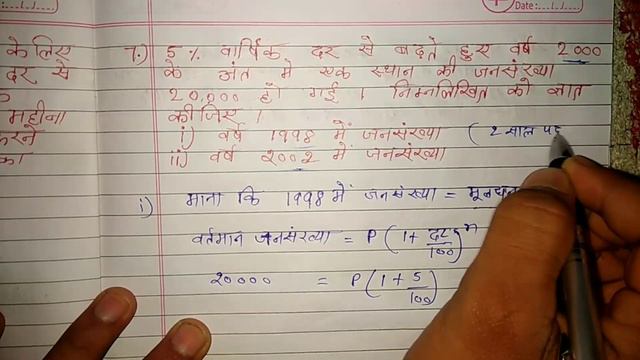 Date:../..
Date:../..
के लिए
दर से
महीना
करने
का
7.) 5% वार्षिक दर से बढ़ते हुए वर्ष 2000
के अंत मे एक स्थान की जनसंख्या
20,000 हो गई । निम्नलिखित को ज्ञात
कीजिए ।
i) वर्ष 1998 में जनसंख्या ( 2 साल पह
ii) वर्ष 2002 में जनसंख्या
i) माना कि 1998 में जनसंख्या = मूलधन
वर्तमान जनसंख्या = P(1 + दर/100)ⁿ
20000 = P(1 + 5/100)